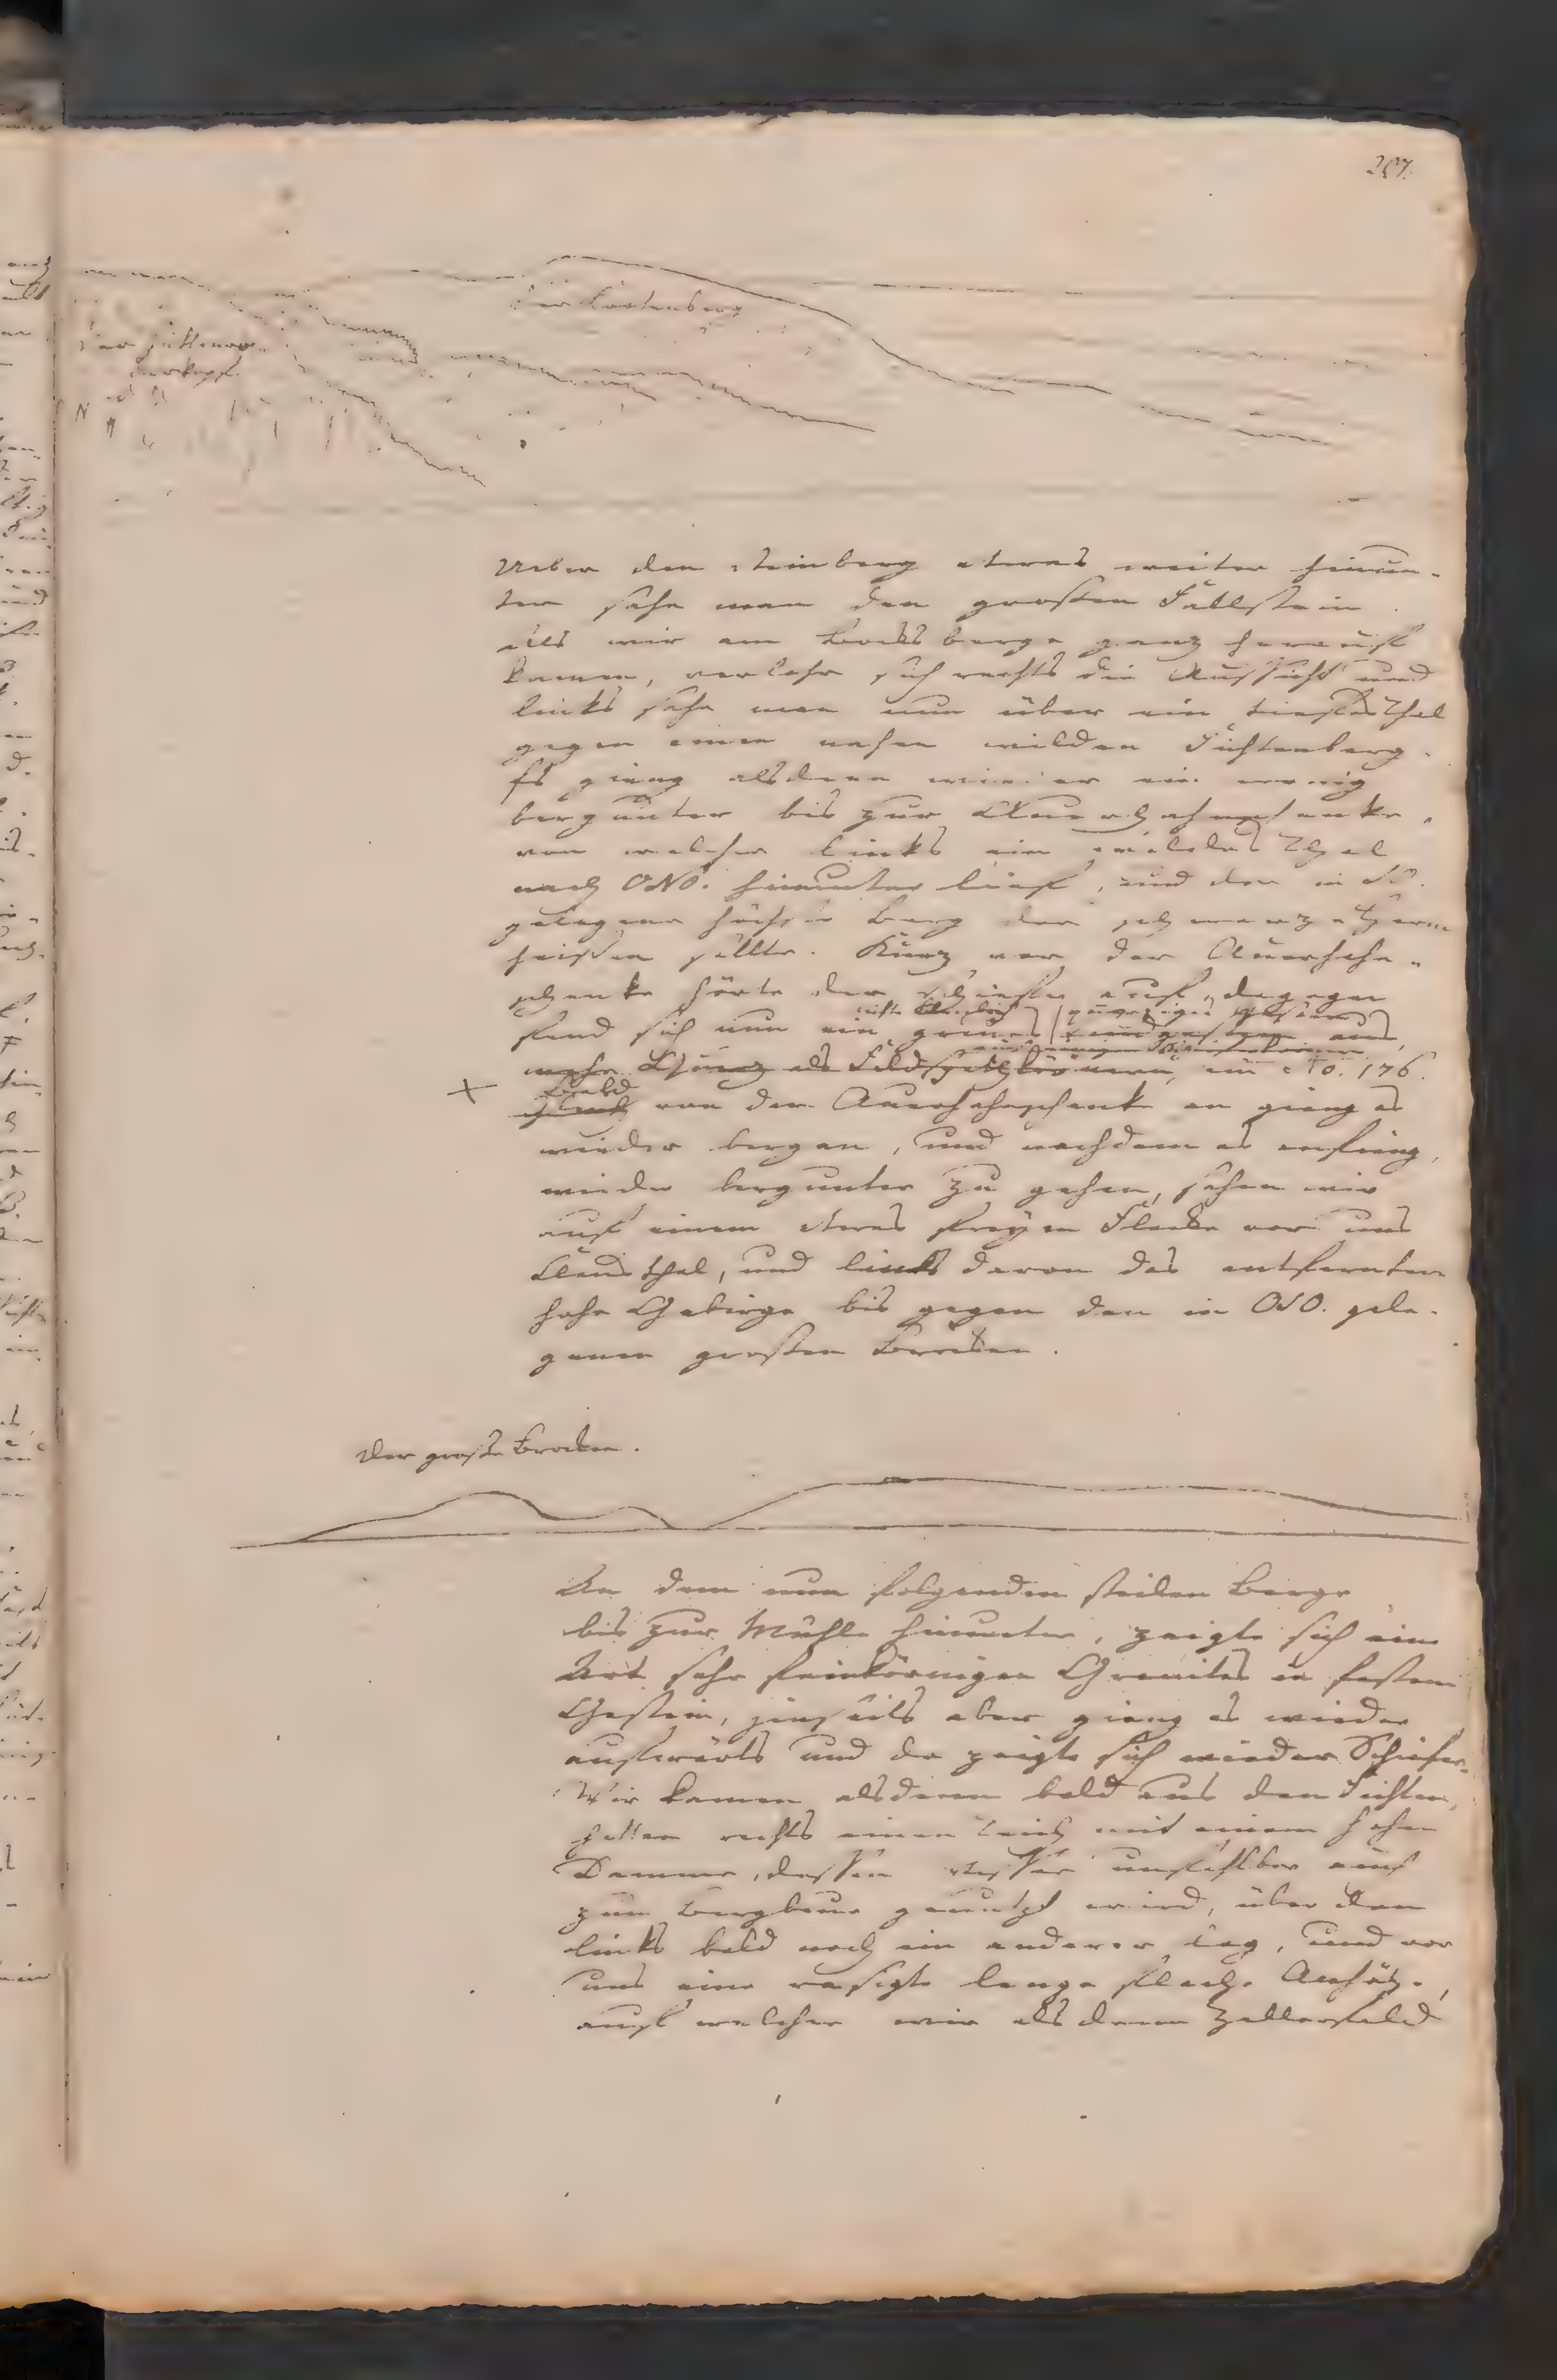 257.
Der Bocksberg
Ueber den Steinberg etwas weiter hinun-
ter sahe man den großen Fallstein.
Als wir am Bocksberge ganz herauf
kamen, verlohr sich rechts die Aussicht und
links sahe man nun über ein tiefes Thal
gegen einen nahen wilden Fichtenberg.
Es gieng alsdenn wieder ein wenig
bergunter bis zur Auerhahnschenke,
von welcher links ein wildes Thal
nach ONO. hinunter lief, und der in SO.
gelegene höchste Berg der
heissen sollte. Kurz vor der Auerhahn-
schenke hörte der Schiefer auf, dagegen
fand sich nun ein graues
mehr Quarz als Feldspathkörnern, in No. 176.
Bald
von der Auerhahnschenk an gieng es
wieder bergan, und nachdem es anfieng,
wieder bergunter zu gehen, sahen wir
auf einem etwas freyen Flecke vor uns
Clausthal, und links davon das entfernte
hohe Gebirge bis gegen den in OSO. gele-
genen großen Brocken.
Der große Brocken.
An dem nun folgenden steilen Berge
bis zur Mühle hinunter, zeigte sich eine
Art sehr feinkörnigen Granites in festem
Gestein, jenseits aber gieng es wieder
aufwärts und da zeigte sich wieder Schiefer.
Wir kamen alsdenn bald aus den Fichten,
hatten rechts einen Teich mit einem hohen
Damme, dessen Wasser unfehlbar auch
zum Bergbau genutzt wird, über dem
links bald noch ein anderer lag, und vor
uns eine rasigte lange flache Anhöhe,
auf welcher wir alsdenn Zellerfeld